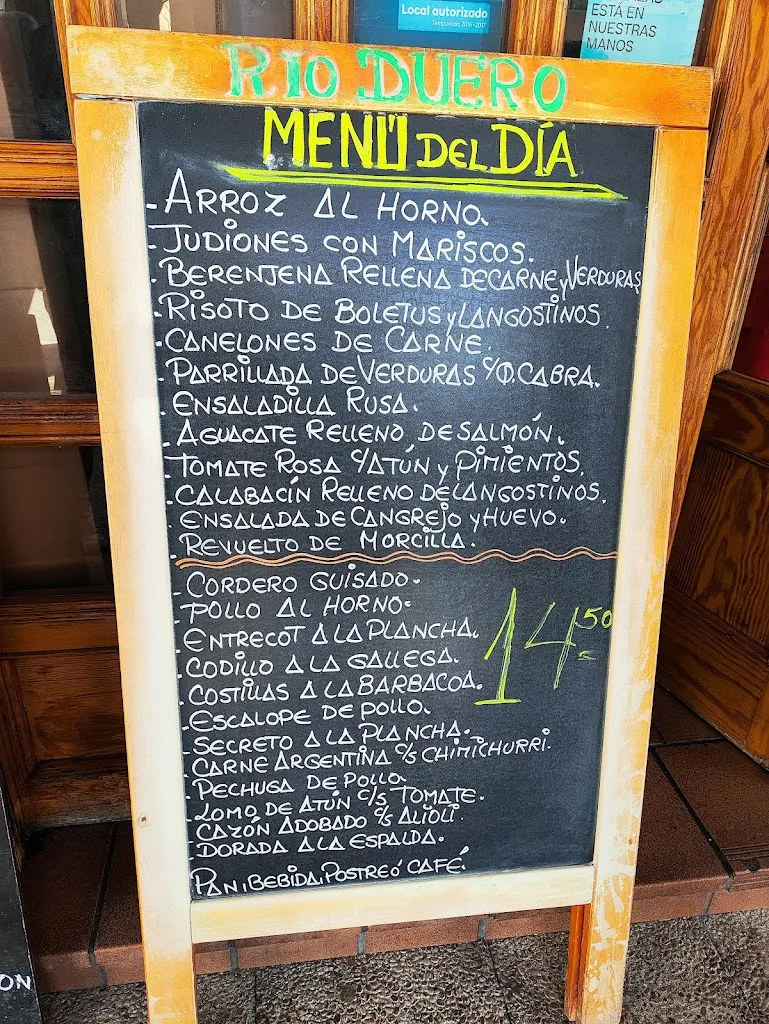 Local autorizado
Temporada 2016-2017
ESTÁ EN
NUESTRAS
MANOS
RIO DUERO
MENÚ DEL DÍA
- ARROZ AL HORNO.
- JUDIONES CON MARISCOS.
- BERENJENA RELLENA DE CARNE y VERDURAS
- RISOTO DE BOLETUS y LANGOSTINOS.
- CANELONES DE CARNE.
- PARRILLADA DE VERDURAS C/Q. CABRA.
- ENSALADILLA RUSA.
- AGUACATE RELLENO DE SALMÓN.
- TOMATE ROSA C/ATÚN y PIMIENTOS.
- CALABACÍN RELLENO DE LANGOSTINOS.
- ENSALADA DE CANGREJO y HUEVO.
- REVUELTO DE MORCILLA.
- CORDERO GUISADO.
- POLLO AL HORNO.
- ENTRECOT A LA PLANCHA.
- CODILLO A LA GALLEGA.
- COSTILLAS A LA BARBACOA.
- ESCALOPE DE POLLO.
- SECRETO A LA PLANCHA.
- CARNE ARGENTINA C/S CHIMICHURRI.
- PECHUGA DE POLLO.
- LOMO DE ATÚN C/S TOMATE.
- CAZÓN ADOBADO C/S ALIOLI.
- DORADA A LA ESPALDA.
14.50
PAN, BEBIDA, POSTRE Ó CAFÉ.
ON